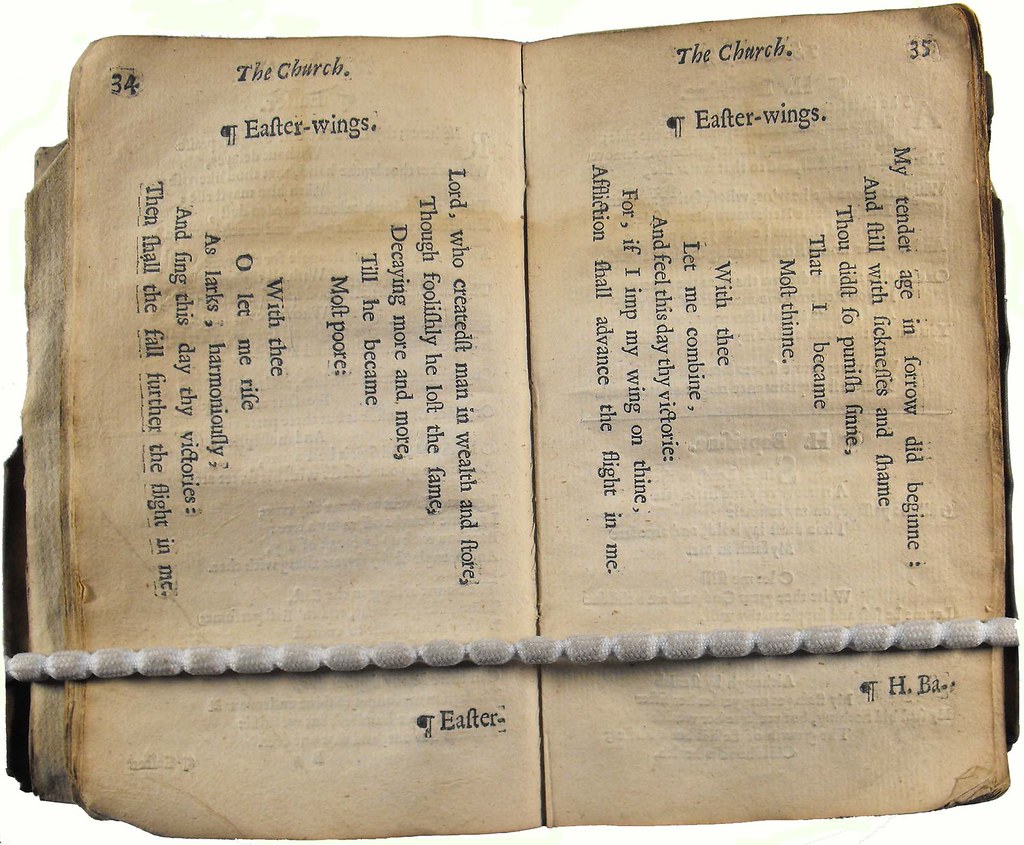 34
The Church.
¶ Eaſter-wings.
Lord, who createdſt man in wealth and ſtore,
Though fooliſhly he loſt the ſame,
Decaying more and more,
Till he became
Moſt poore:
With thee
O let me riſe
As larks, harmoniouſly,
And ſing this day thy victories:
Then ſhall the fall further the flight in me.
¶ Eaſter-
The Church.
35
¶ Eaſter-wings.
My tender age in ſorrow did beginne:
And ſtill with ſickneſſes and ſhame
Thou didſt ſo puniſh ſinne,
That I became
Moſt thinne.
With thee
Let me combine,
And feel this day thy victorie:
For, if I imp my wing on thine,
Affliction ſhall advance the flight in me.
¶ H. Ba-